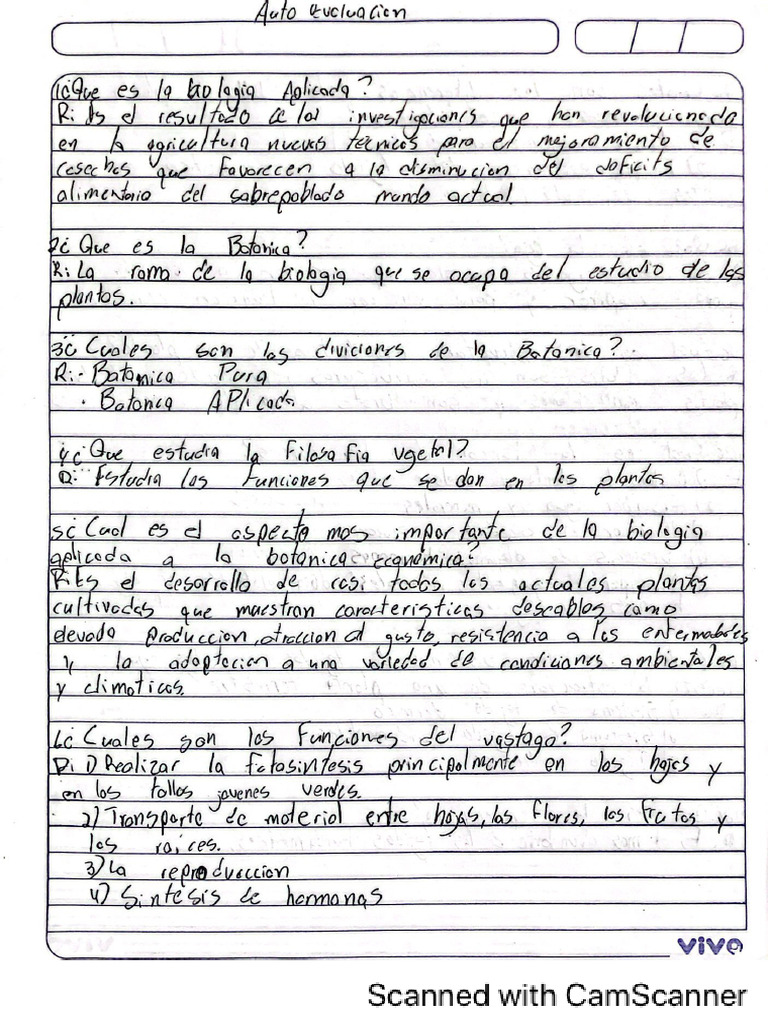 Auto Evaluacion
1¿Que es la biologia Aplicada?
R: Es el resultado de las investigaciones que han revolucionado
en la agricultura nuevas tecnicas para el mejoramiento de
cosechas que favorecen a la disminucion del deficits
alimentario del sobrepoblado mundo actual.
2¿ Que es la Botanica?
R: La rama de la biologia que se ocupa del estudio de las
plantas.
3¿ Cuales son las diviciones de la Botanica?
R: · Botanica Pura
· Botanica APlicada
4¿ Que estudia la Filosofia vgetal?
R: Estudia las funciones que se dan en las plantas
5¿ Cual es el aspecto mas importante de la biologia
aplicada a la botanica economica?
R: Es el desarrollo de casi todas las actuales plantas
cultivadas que muestran caracteristicas deseables como
elevada produccion, atraccion al gusto, resistencia a las enfermedades
y la adaptacion a una variedad de condiciones ambientales
y climaticas.
6¿ Cuales son las Funciones del vastago?
R: 1) Realizar la fotosintesis principalmente en las hojas y
en los tallos jovenes verdes.
2) Transporte de material entre hojas, las flores, las frutas y
las raices.
3) La reproduccion
4) Sintesis de hormonas
vivo
Scanned with CamScanner